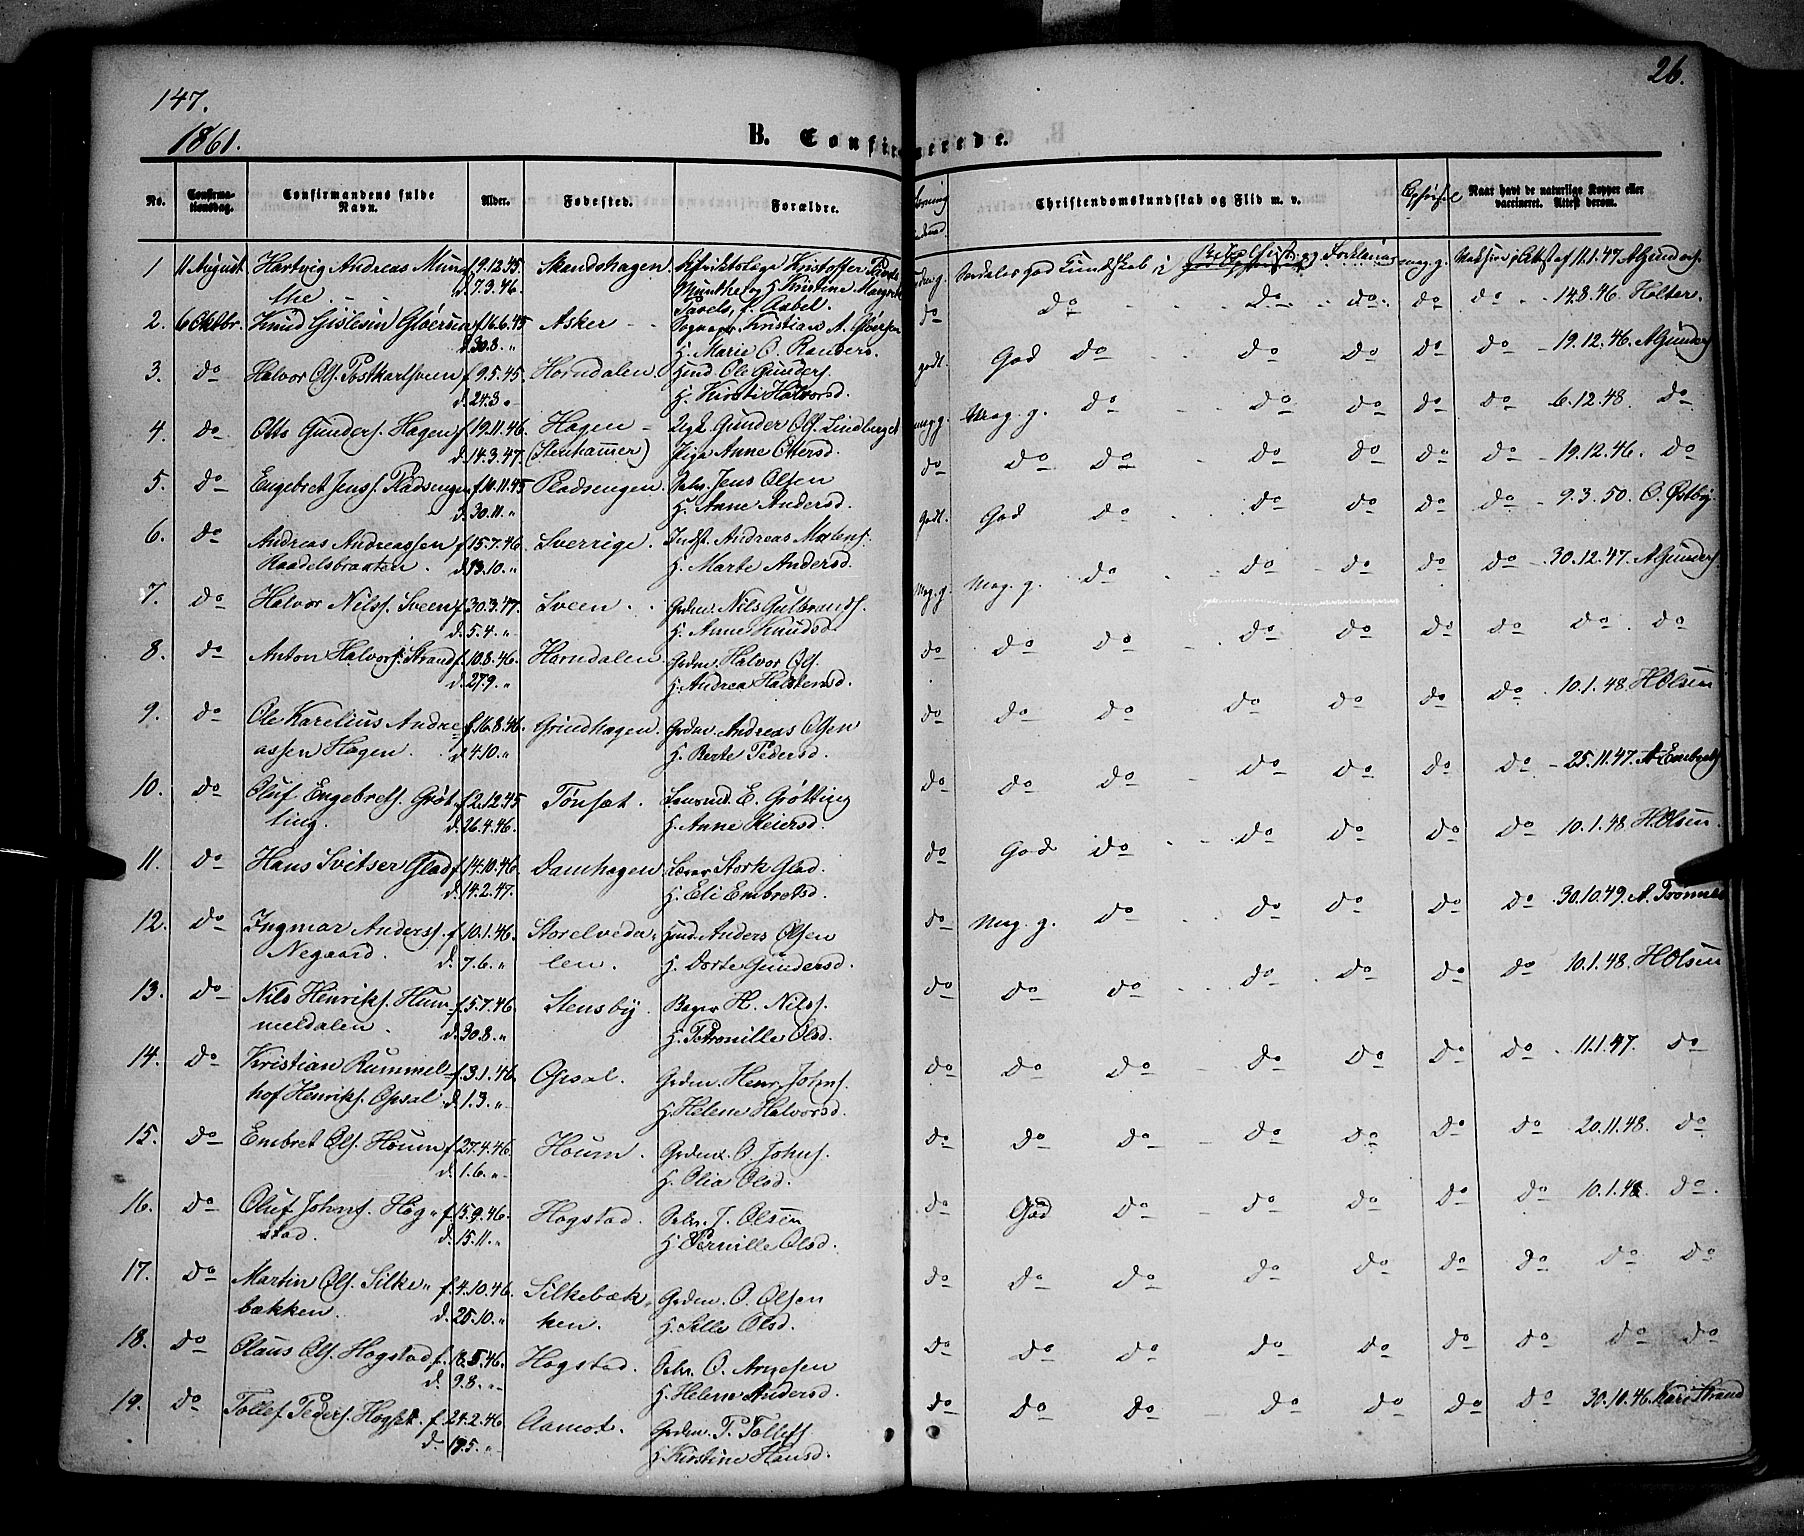 147.
26.
1861.
B. Confirmerede.
No.
Confirma-
tionsdag.
Confirmandens fulde
Navn.
Alder.
Fødested.
Forældre.
Christendomskundskab og Flid m. v.
Opførsel
Naar havt de naturlige Kopper eller
vaccineret. Attest derom.
1 11 August Hartvig Andreas Mun f. 9.12.45 Skandshagen. Distriktslæge Kristoffer
the d. 7.3.46. Munthe og H. Kristine Margrete
11.1.47 AGunders.
2. 6 Oktbr. Knud Gislesen Gløersen f. 16.6.45 Asker Kristian A. Gløersen
d. 30.8. „ H. Marie C. Randers.
do do do do do do do 14.8.46 Holter.
3. do Halvor Ols. Postkarlsveen f. 9.5.45. Horndalen. Huusd. Ole Gunders.
d. 24.3 „ H. Kirsti Halvorsd.
godt. God do do do do do 19.12.46. AGunders
4. do Otto Gunders. Hagen f. 19.11.46. Hagen Gunder Ols. Lindberget
d. 14.3.47. (Stenhammer) Pige Anne Ottersd.
meg g. Meg. g. do do do do do 6.12.48. do
5. do Engebret Jens. Pladsengen f. 10.11.45 Pladsengen. Jens Olsen
d. 30.11. „ H. Anne Andersd.
do do do do do do do 19.12.46. do
6. do Andreas Andreassen f. 15.7.46. Sverrige. Indst. Andreas
d. 13.10. „ H. Marte Andersd.
Godt. God do do do do do 9.3.50. O. Østby.
7. do Halvor Nilss. Sveen f. 30.3.47. Sveen. Grdm. Nils Gulbrands.
d. 5.4. „ H. Anne Knudsd.
Meg. g Meg. g. do do do do do 30.12.47. AGunders.
8. do Anton Halvors. Strand f. 10.8.46. Horndalen. Grdm. Halvor Ols.
d. 27.9. „ H. Andrea Halstensd.
do do do do do do do do do
9. do Ole Karelius Andre= f. 16.8.46. Grindhagen. Grdm. Andreas Olsen
assen Hagen. d. 4.10. „ H. Berte Pedersd.
do do do do do do do 10.1.48. HOlsen
10. do Oluf Engebrets. Grøt f. 2.12.45 Tønset. Lensmd. E. Grøtting
ting. d. 26.4.46. H. Anne Reiersd.
do do do do do do do 25.11.47. A Embrets
11. do Hans Svitser Glad f. 14.10.46 Damhagen Lærer Stork Glad.
d. 14.2.47. H. Eli Embretsd.
do God do do do do do 10.1.48. HOlsen.
12. do Ingmar Anders. f. 10.1.46. Storelveda= Huusd. Anders Olsen
Negaard. d. 7.6. „ len. H. Dorte Gundersd.
do Meg. g. do do do do do 30.10.49.
13. do Nils Henriks. Hum= f. 5.7.46. Stensby. Bager H. Nilss.
meldalen. d. 30.8. „ H. Petronille Olsd.
do do do do do do do 10.1.48. HOlsen
14. do Kristian Rummel= f. 3.1.46. Opsal. Grdm. Henr. Johns.
hof Henriks. Opsal d. 1.3. „ H. Helene Halvorsd.
do do do do do do do 11.1.47. do
15. do Embret Ols. Houm f. 27.4.46. Houm. Grdm. O. Johns.
d. 1.6. „ H. Olia Olsd.
do do do do do do do 20.11.48. do
16. do Oluf Johns. Hog= f. 15.9.46. Hogstad. J. Olsen
stad. d. 15.11. „ H. Pernille Olsd.
do God do do do do do 10.1.48 do
17. do Martin Ols. Silke= f. 4.10.46. Silkebæk= Grdm. O. Olsen
bækken. d. 25.10. „ ken. H. Sille Olsd.
do do do do do do do do do
18. do Olaus Ols. Hogstad f. 18.5.46. Hogstad. O. Arnesen
d. 9.8. „ H. Helene Andersd.
do do do do do do do do do
19. do Tollef Peders. f. 21.2.46 Aamot. Grdm. P. Tollefs.
d. 19.5. „ H. Kirstine Hansd.
do do do do do do do 30.10.46. Kari Strand